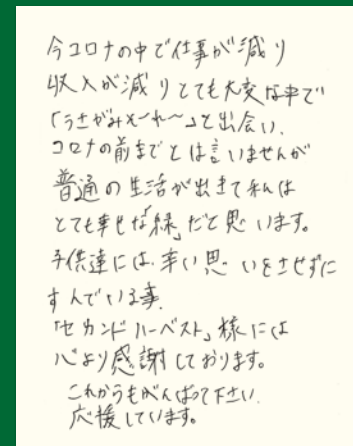 今コロナの中で仕事が減り
収入が減りとても大変な中で
「うさがみそ〜れ〜」と出会い、
コロナの前までとは言いませんが
普通の生活が出きて私は
とても幸せな「縁」だと思います。
子供達には、辛い思いをさせずに
すんでいる事、
「セカンドハーベスト」様には
心より感謝しております。
これからもがんばって下さい。
応援しています。